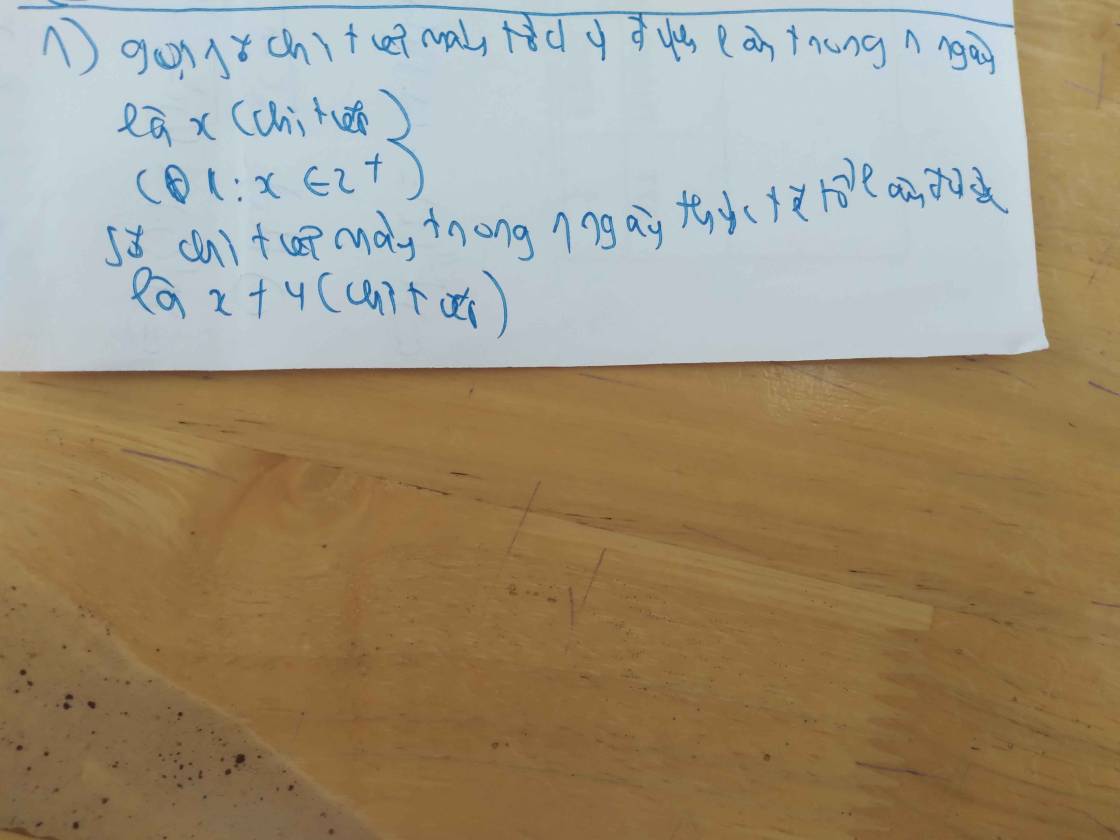 1) gọi số chi tiết máy tổ dự định làm trong 1 ngày
là x (chi tiết)
(ĐK: x ∈ Z+)
số chi tiết máy trong 1 ngày thực tế tổ làm được
là x + 4 (chi tiết)